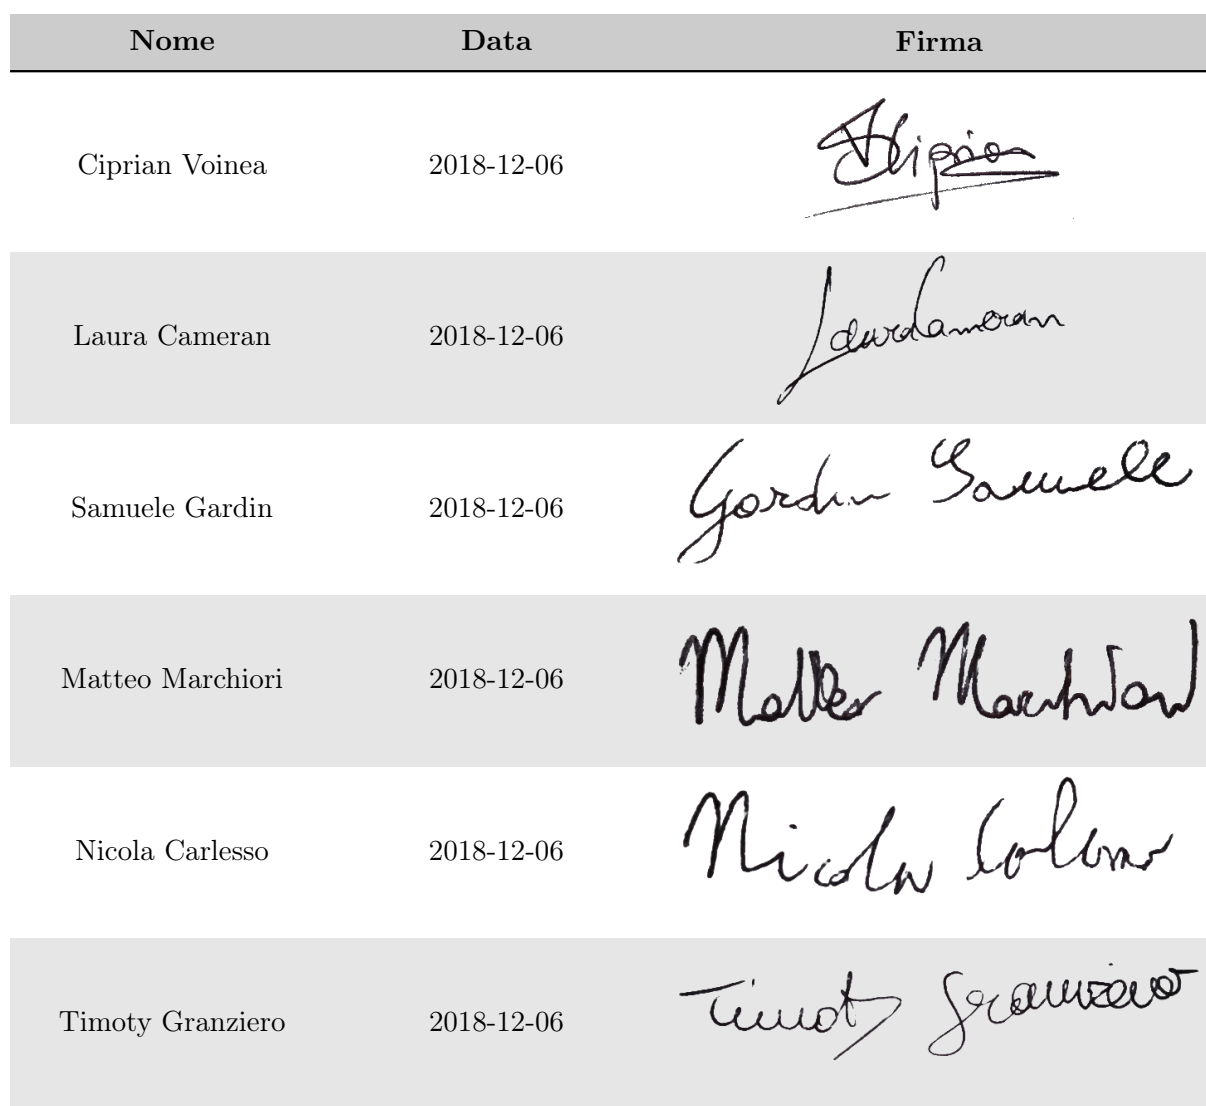 Nome Data Firma
Ciprian Voinea 2018-12-06 Ciprian
Laura Cameran 2018-12-06 Laura Cameran
Samuele Gardin 2018-12-06 Gardin Samuele
Matteo Marchiori 2018-12-06 Matteo Marchiori
Nicola Carlesso 2018-12-06 Nicola Carlesso
Timoty Granziero 2018-12-06 Timoty Granziero